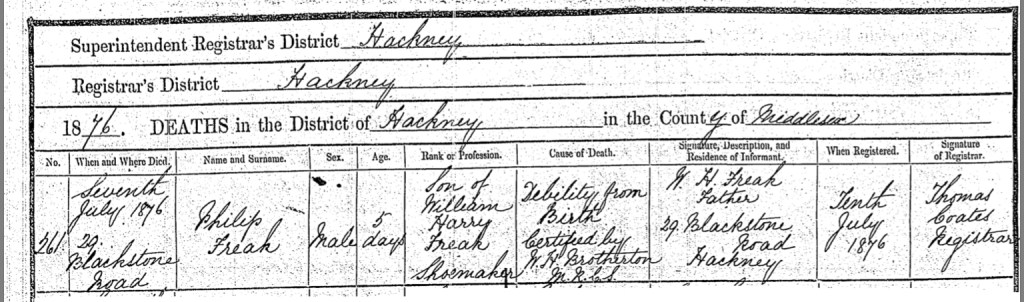 Superintendent Registrar's District Hackney
Registrar's District Hackney
1876. DEATHS in the District of Hackney in the County of Middlesex
No. When and Where Died. Name and Surname. Sex. Age. Rank or Profession. Cause of Death. Signature, Description, and Residence of Informant. When Registered. Signature of Registrar.
261
Seventh
July 1876
29
Blackstone
Road
Philip
Freak
Male
5
days
Son of
William
Harry
Freak
Shoemaker
Debility from
Birth
Certified by
W. H. Brotherton
M.R.C.S.
W. H. Freak
Father
29 Blackstone
Road
Hackney
Tenth
July
1876
Thomas
Coates
Registrar